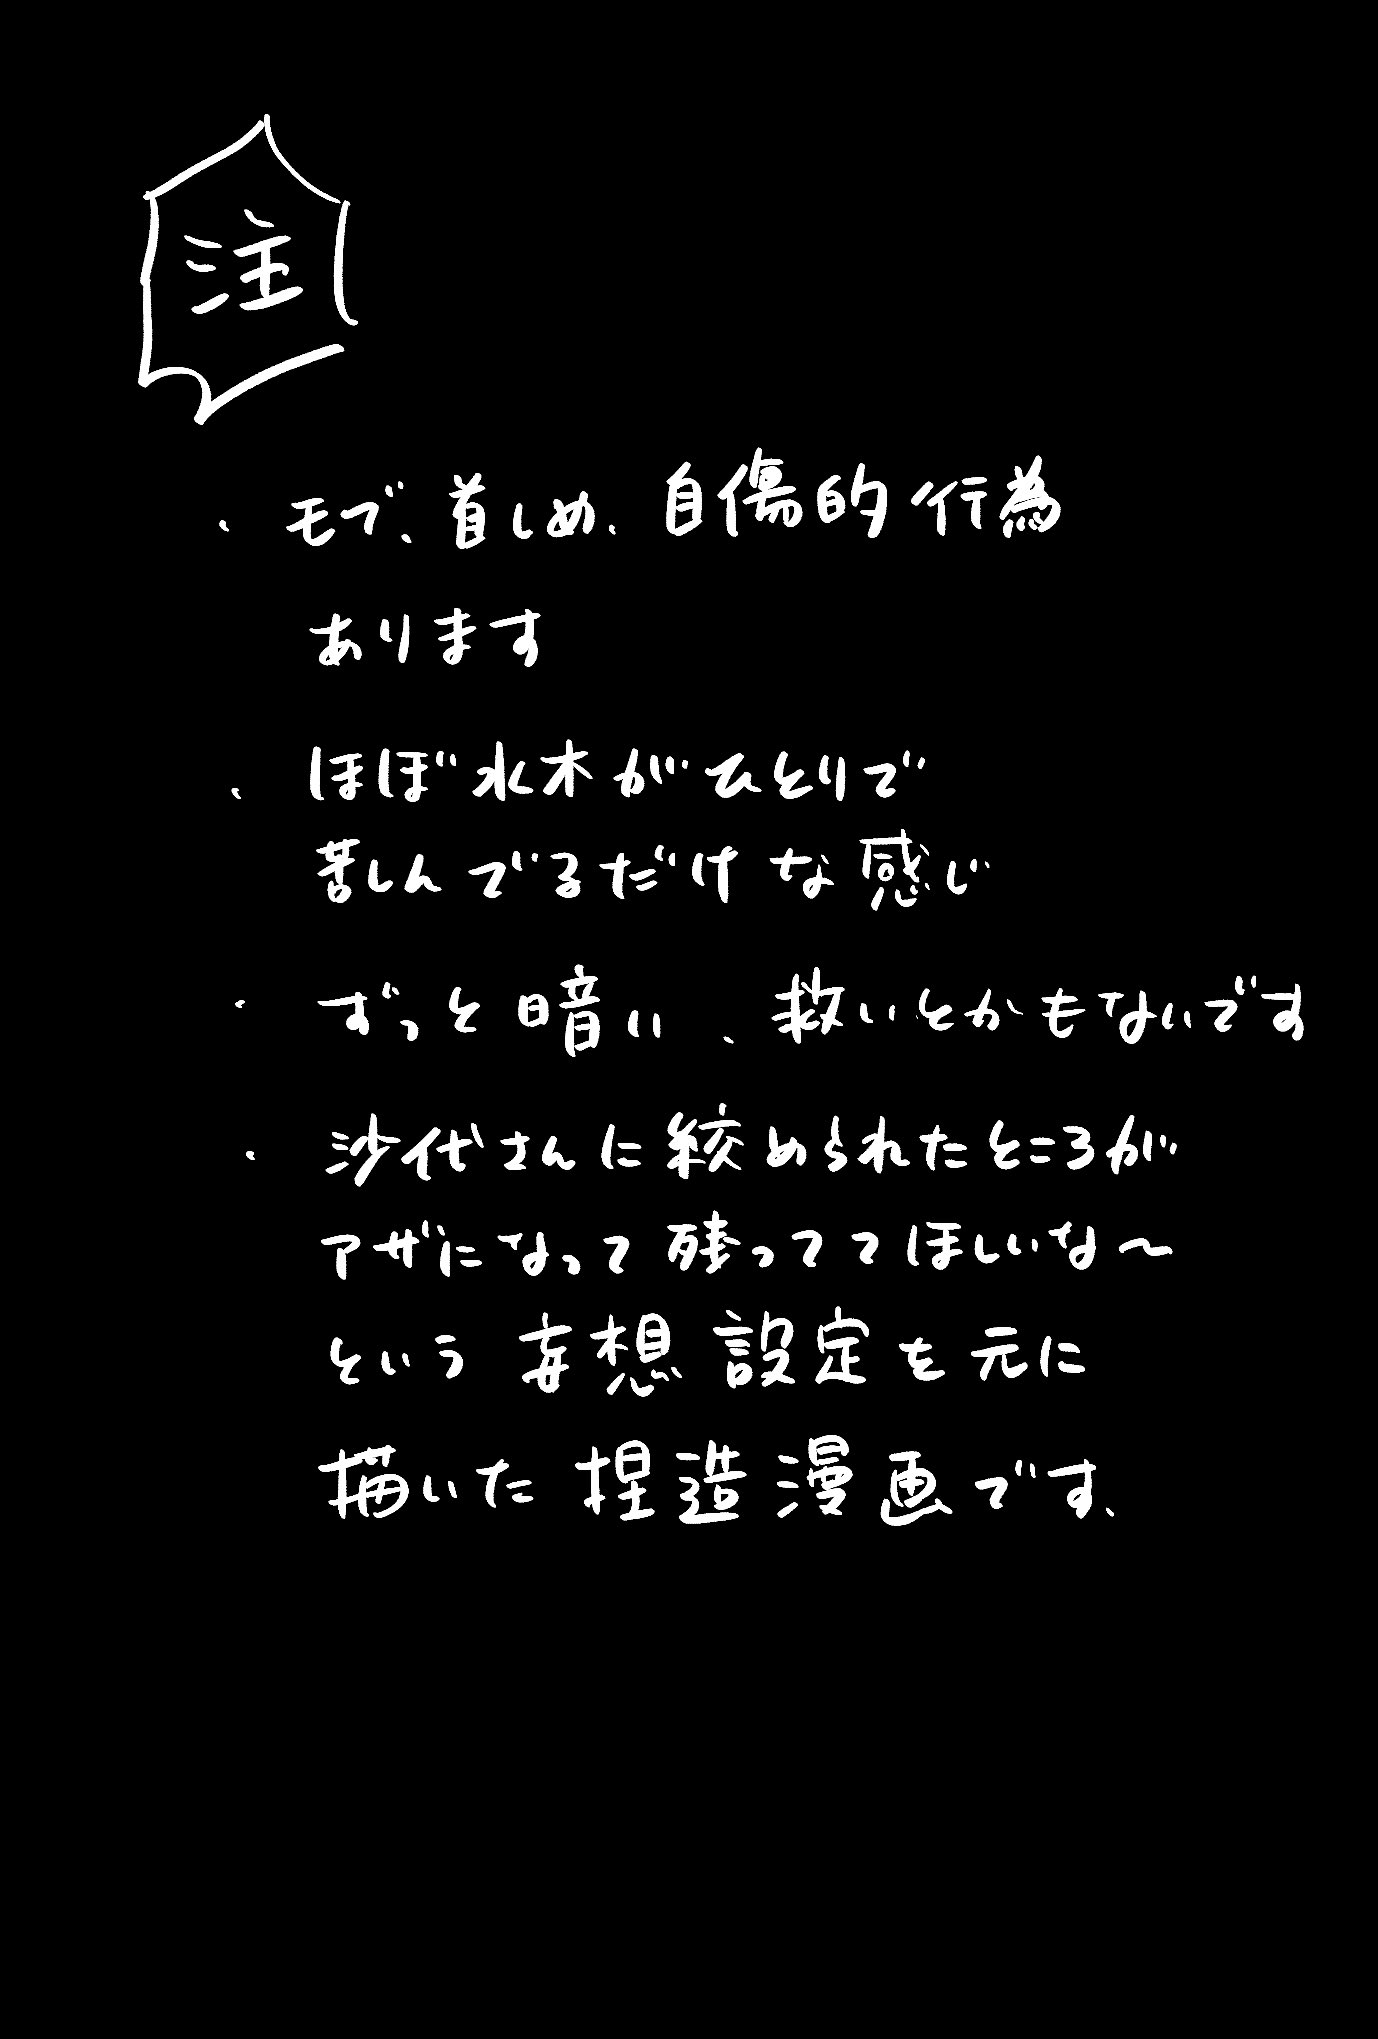 注
・モブ、首しめ、自傷的行為
あります
・ほぼ水木がひとりで
苦しんでるだけな感じ
・ずっと暗い、救いとかもないです
・沙代さんに絞められたところが
アザになって残っててほしいな～
という妄想設定を元に
描いた捏造漫画です、